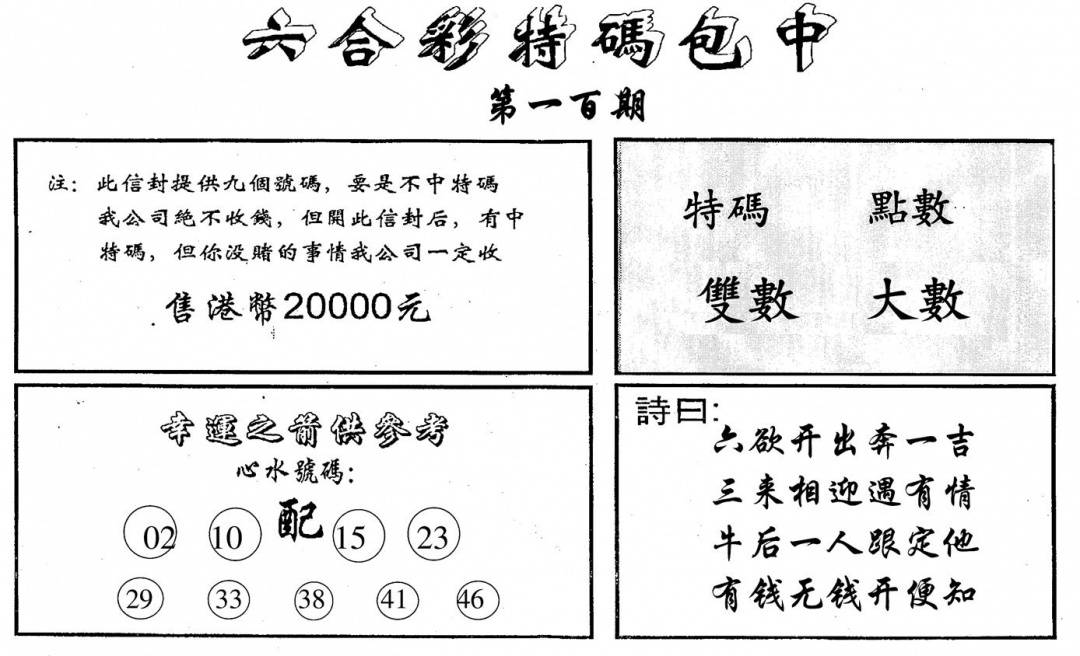 六合彩特碼包中
第一百期
注：此信封提供九個號碼，要是不中特碼
我公司絕不收錢，但開此信封后，有中
特碼，但你没賭的事情我公司一定收
售港幣20000元
特碼 點數
雙數 大數
幸運之箭供參考
心水號碼：
配
02 10 15 23
29 33 38 41 46
詩曰：
六欲开出奔一吉
三来相迎遇有情
牛后一人跟定他
有钱无钱开便知